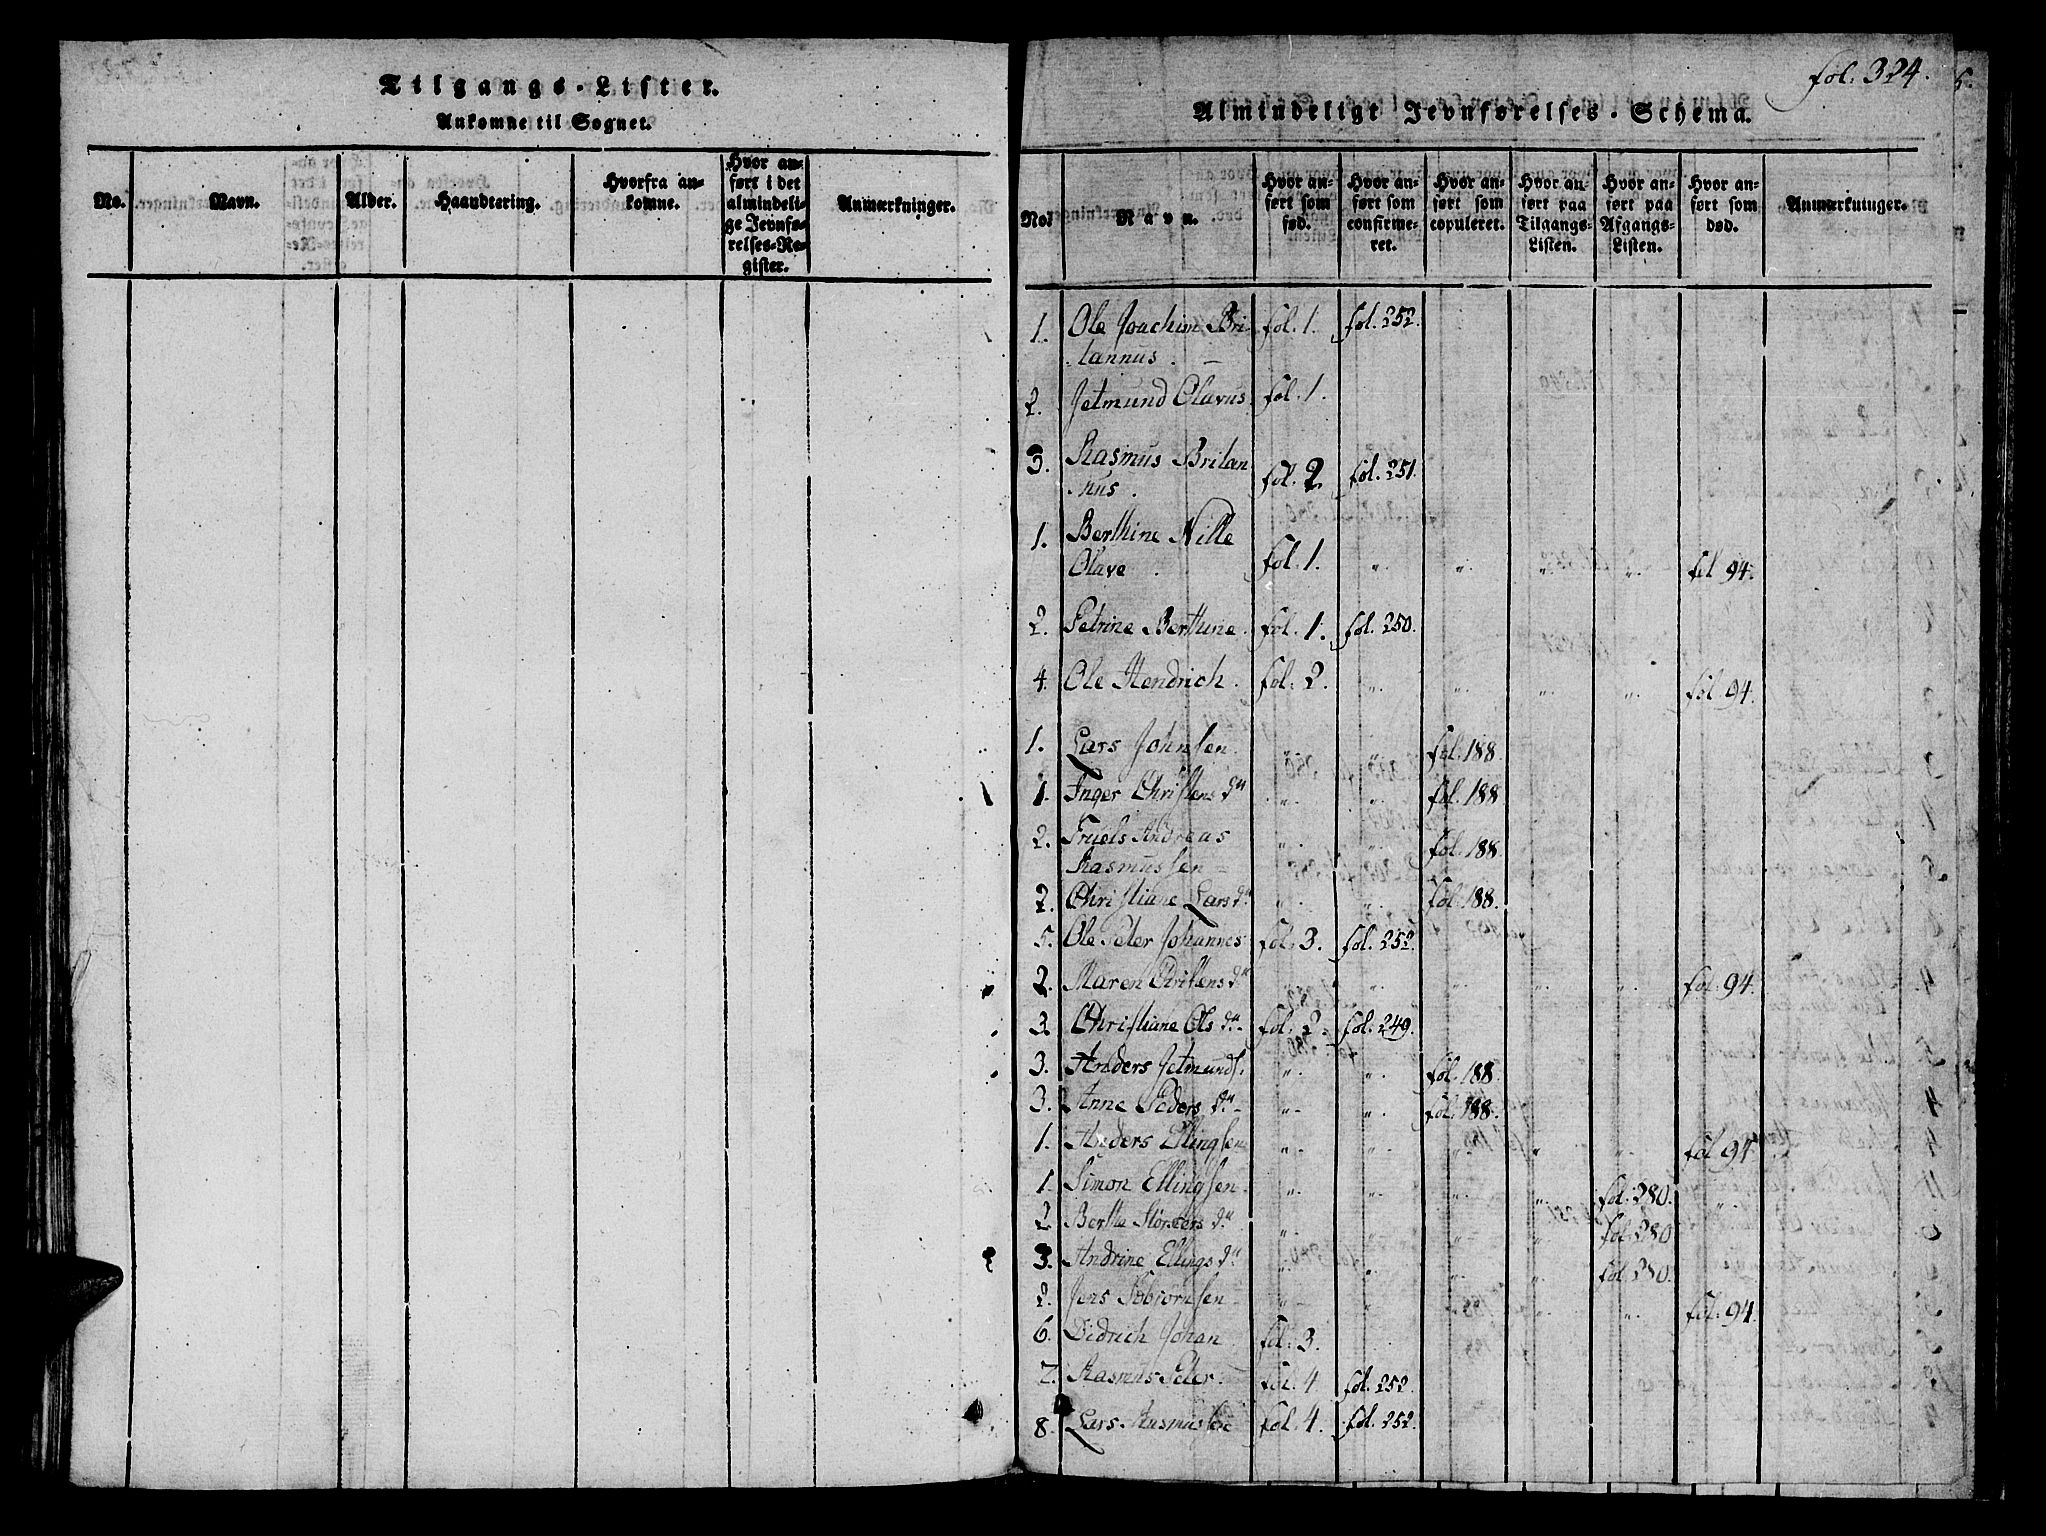 Tilgangs-Lister.
Ankomne til Sognet.
No.
Navn.
Alder.
Haandtering.
Hvorfra an-
komne.
Hvor an-
ført i det
almindeli-
ge Jevnfø-
relses-Re-
gister.
Anmærkninger.
fol. 324.
Almindeligt Jevnførelses-Schema.
No.
Navn.
Hvor an-
ført som
fød.
Hvor an-
ført som
confirme-
ret.
Hvor an-
ført som
copuleret.
Hvor an-
ført paa
Tilgangs-
Listen.
Hvor an-
ført paa
Afgangs-
Listen.
Hvor an-
ført som
død.
Anmærkninger.
1. Ole Joachim Bri- fol. 1. fol. 252.
tannus.
2. Jetmund Olavus fol. 1.
3. Rasmus Britan
nus. fol. 2 fol. 251.
1. Berthine Nille
Olave. fol. 1. „ „ „ „ fol 94.
2. Petrine Berthine. fol. 1. fol. 250.
4. Ole Hendrich. fol. 2. „ „ „ „ fol 94.
1. Lars Johnsen. „ „ fol. 188.
1. Inger Christens dr „ „ fol. 188
2. Truels Andreas „ „ fol. 188.
Rasmussen
2. Christiane Lars dr „ „ fol. 188.
5. Ole Peter Johannes fol. 3. fol. 252.
2. Maren Christens dr „ „ „ „ „ fol. 94.
3. Christiane Ols dr fol. 2. fol. 249.
3. Anders Jetmunds. „ „ fol. 188.
3. Anne Peders dr „ „ fol. 188.
1. Anders Ellingsen „ „ „ „ „ fol 94
1. Simon Ellingsen „ „ „ „ fol. 280. „
2 Berthe dr „ „ „ „ fol. 280
3. Andrine Ellings dr „ „ „ „ fol. 280.
2. Jens „ „ „ „ „ fol. 94.
6. Didrich Johan fol. 3.
7. Rasmus Peter. fol. 4 fol. 252.
8. Lars Rasmus fol. 4. fol. 252.